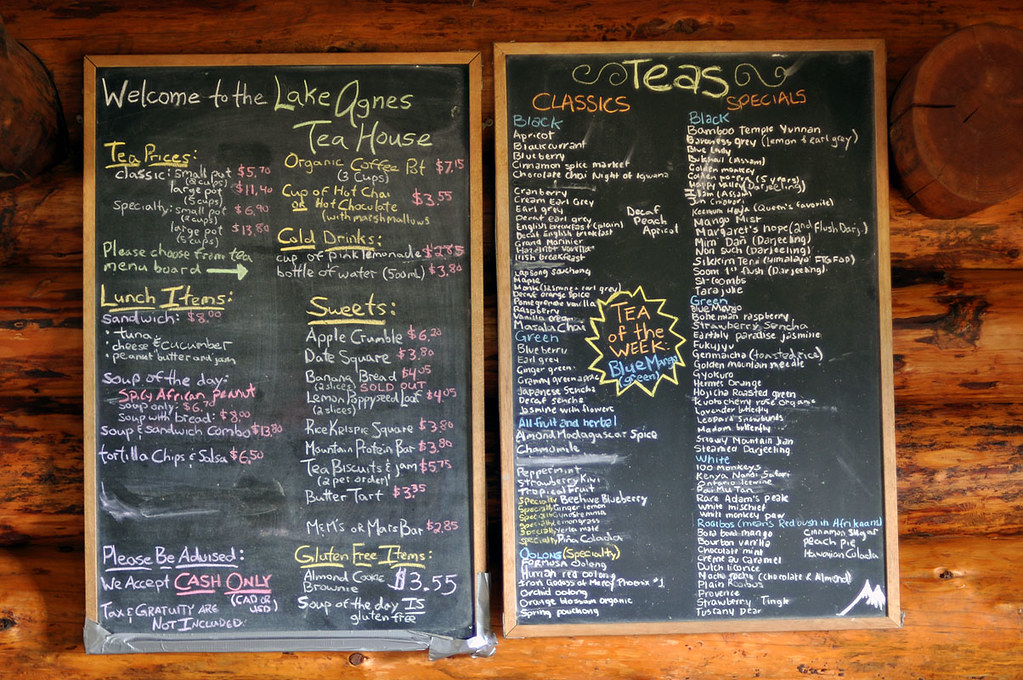 Welcome to the Lake Agnes
Tea House
Tea Prices:
classic: small pot $5.70
(2 cups)
large pot $11.40
(5 cups)
Specialty: small pot $6.90
(2 cups)
large pot $13.80
(5 cups)
Please choose from tea
menu board
Lunch Items:
Sandwich: $8.00
tuna
cheese & cucumber
peanut butter and jam
soup of the day:
Spicy African peanut
soup only: $6.70
soup with bread: $8.00
soup & sandwich combo $13.80
tortilla Chips & Salsa $6.50
Please Be Advised:
We Accept CASH ONLY
(CAD or
USD)
Tax & Gratuity are
Not Included.
Organic Coffee Pot $7.15
(3 Cups)
Cup of Hot Chai $3.55
or Hot Chocolate
(with marshmallows
Cold Drinks:
cup of pink lemonade $2.85
bottle of water (500ml) $3.80
Sweets:
Apple Crumble $6.20
Date Square $3.80
Banana Bread $4.05
(2 slices) SOLD OUT
Lemon Poppyseed Loaf $4.05
(2 slices)
Rice Krispie Square $3.80
Mountain Protein Bar $3.80
Tea Biscuits & jam $5.75
(2 per order)
Butter Tart $3.35
M&M's or Mars Bar $2.85
Gluten Free Items:
Almond Cookie $3.55
Brownie
Soup of the day IS
gluten free
Teas
CLASSICS
Black
Apricot
Blackcurrant
Blueberry
Cinnamon spice market
Chocolate chai Night of Iguana
Cranberry
Cream Earl Grey
Earl grey
Decaf earl grey
English breakfast (plain)
Decaf English breakfast
Grand Marinier
Hazelnut vanilla
Irish breakfast
Decaf
Peach
Apricot
Lapsang souchong
Maple
Monk (Jasmine & earl grey)
Decaf orange spice
Pomegranate vanilla
Raspberry
Vanilla cream
Masala Chai
Green
Blueberry
Earl grey
Ginger green
Granny green apple
Japanese Sencha
Decaf sencha
Jasmine with flowers
All fruit and herbal
Almond Madagascar Spice
Chamomile
Peppermint
Strawberry Kiwi
Tropical fruit
Specialty Beehive Blueberry
Specialty Ginger lemon
Specialty
Specialty Lemongrass
Specialty Yerba maté
specialty Piña Colada
Oolons (Specialty)
Formosa Oolong
Hunan red oolong
Iron Goddess of Mercy Phoenix #1
Orchid oolong
Orange blossom organic
Spring pouchong
TEA
OF the
WEEK:
Blue Mango
(green)
SPECIALS
Black
Bamboo Temple Yunnan
Baroness grey (Lemon & earl gray)
Blue Lady
(Assam)
Golden monkey
Golden pu-erh (5 years)
Happy Valley (Darjeeling)
(Assam)
Keemun Hoya (Queen's favorite)
Mango Mist
Margaret's hope (2nd flush Darj.)
Mim Dan (Darjeeling)
Non such (Darjeeling)
Sikkim Temi
Soom 1st flush (Darjeeling)
St-Coombs
Tarajulie
Green
Blue Mango
Bohemian raspberry
Strawberry Sencha
Earthly paradise jasmine
Fukujyu
Genmaicha (toasted rice)
Golden mountain needle
Gyokuro
Hermet Orange
Hojicha Roasted green
Kyoto cherry rose organic
Lavender butterfly
Leopard Snowbuds
Madam butterfly
Snowy Mountain Jian
Steamed Darjeeling
White
100 Monkeys
Kenya Nandi Safari
Ontario Icewine
Pai Mu Tan
Rare Adam's peak
White mischief
White monkey paw
Rooibos (means Redbush in Afrikaans)
Bora bora mango
Bourbon vanilla
Chocolate mint
Crème au Caramel
Dutch licorice
Mocha pocha (chocolate & Almond)
Plain Roibus
Provence
Strawberry Tingle
Tuscany pear
Cinnamon Sugar
peach Pie
Hawaiian Colada